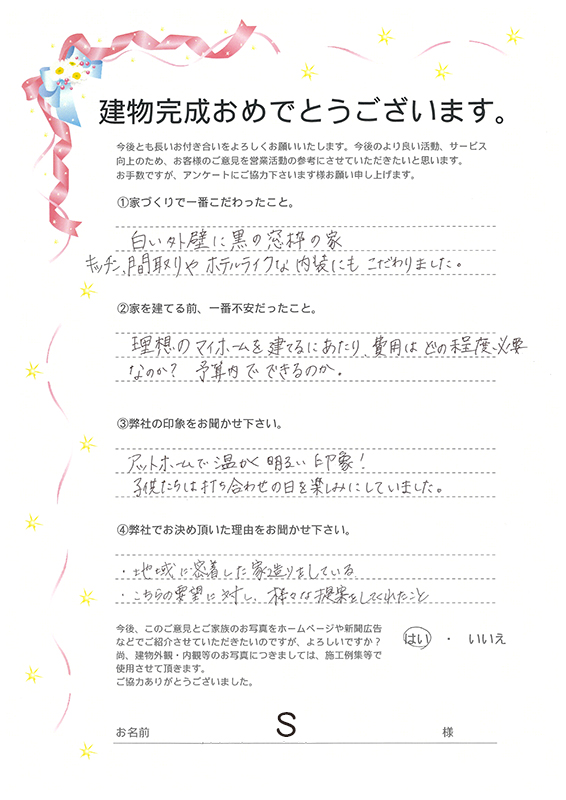 建物完成おめでとうございます。
今後とも長いお付き合いをよろしくお願いいたします。今後のより良い活動、サービス
向上のため、お客様のご意見を営業活動の参考にさせていただきたいと思います。
お手数ですが、アンケートにご協力下さいます様お願い申し上げます。
①家づくりで一番こだわったこと。
白い外壁に黒の窓枠の家
キッチン、間取りやホテルライクな内装にもこだわりました。
②家を建てる前、一番不安だったこと。
理想のマイホームを建てるにあたり、費用はどの程度必要
なのか? 予算内でできるのか。
③弊社の印象をお聞かせ下さい。
アットホームで温かく明るい印象!
子供たちは打ち合わせの日を楽しみにしていました。
④弊社でお決め頂いた理由をお聞かせ下さい。
・地域に密着した家造りをしている
・こちらの要望に対し、様々な提案をしてくれたこと
今後、このご意見とご家族のお写真をホームページや新聞広告
などでご紹介させていただきたいのですが、よろしいですか? はい ・ いいえ
尚、建物外観・内観等のお写真につきましては、施工例集等で
使用させて頂きます。
ご協力ありがとうございました。
お名前 S 様